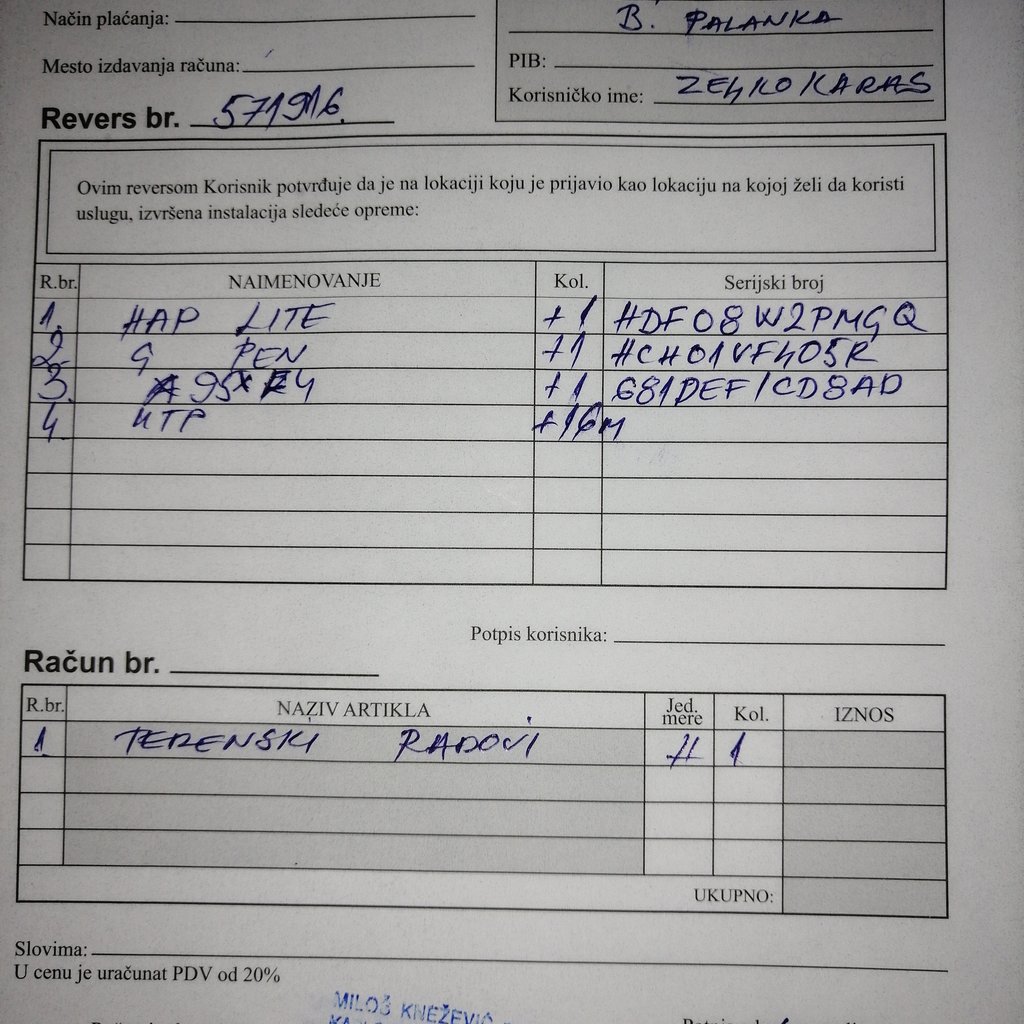 B. PALANKA
Način plaćanja:
Mesto izdavanja računa:
PIB:
Korisničko ime: ZELJKOKARAS
Revers br. 571916
Ovim reversom Korisnik potvrđuje da je na lokaciji koju je prijavio kao lokaciju na kojoj želi da koristi
uslugu, izvršena instalacija sledeće opreme:
R.br. NAIMENOVANJE Kol. Serijski broj
1. HAP LITE +1 HDF08W2PMGQ
2. G PEN +1 HCH01VF405R
3. +1 681DEF1CD8AD
4. UTP +16m
Potpis korisnika:
Račun br.
R.br. NAZIV ARTIKLA Jed. mere Kol. IZNOS
1 TERENSKI RADOVI H 1
UKUPNO:
Slovima:
U cenu je uračunat PDV od 20%
MILOŠ KNEŽEVIĆ